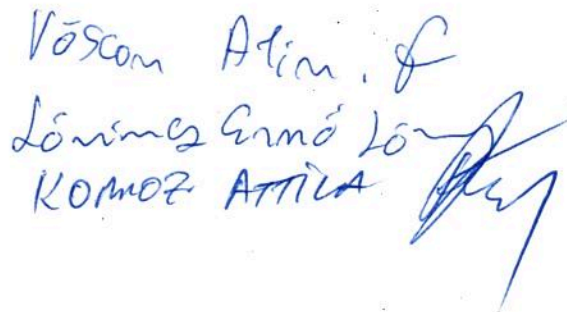 Vőscan Alin.
Lőrincz Ernő Lőr
KORMOZ ATTILA